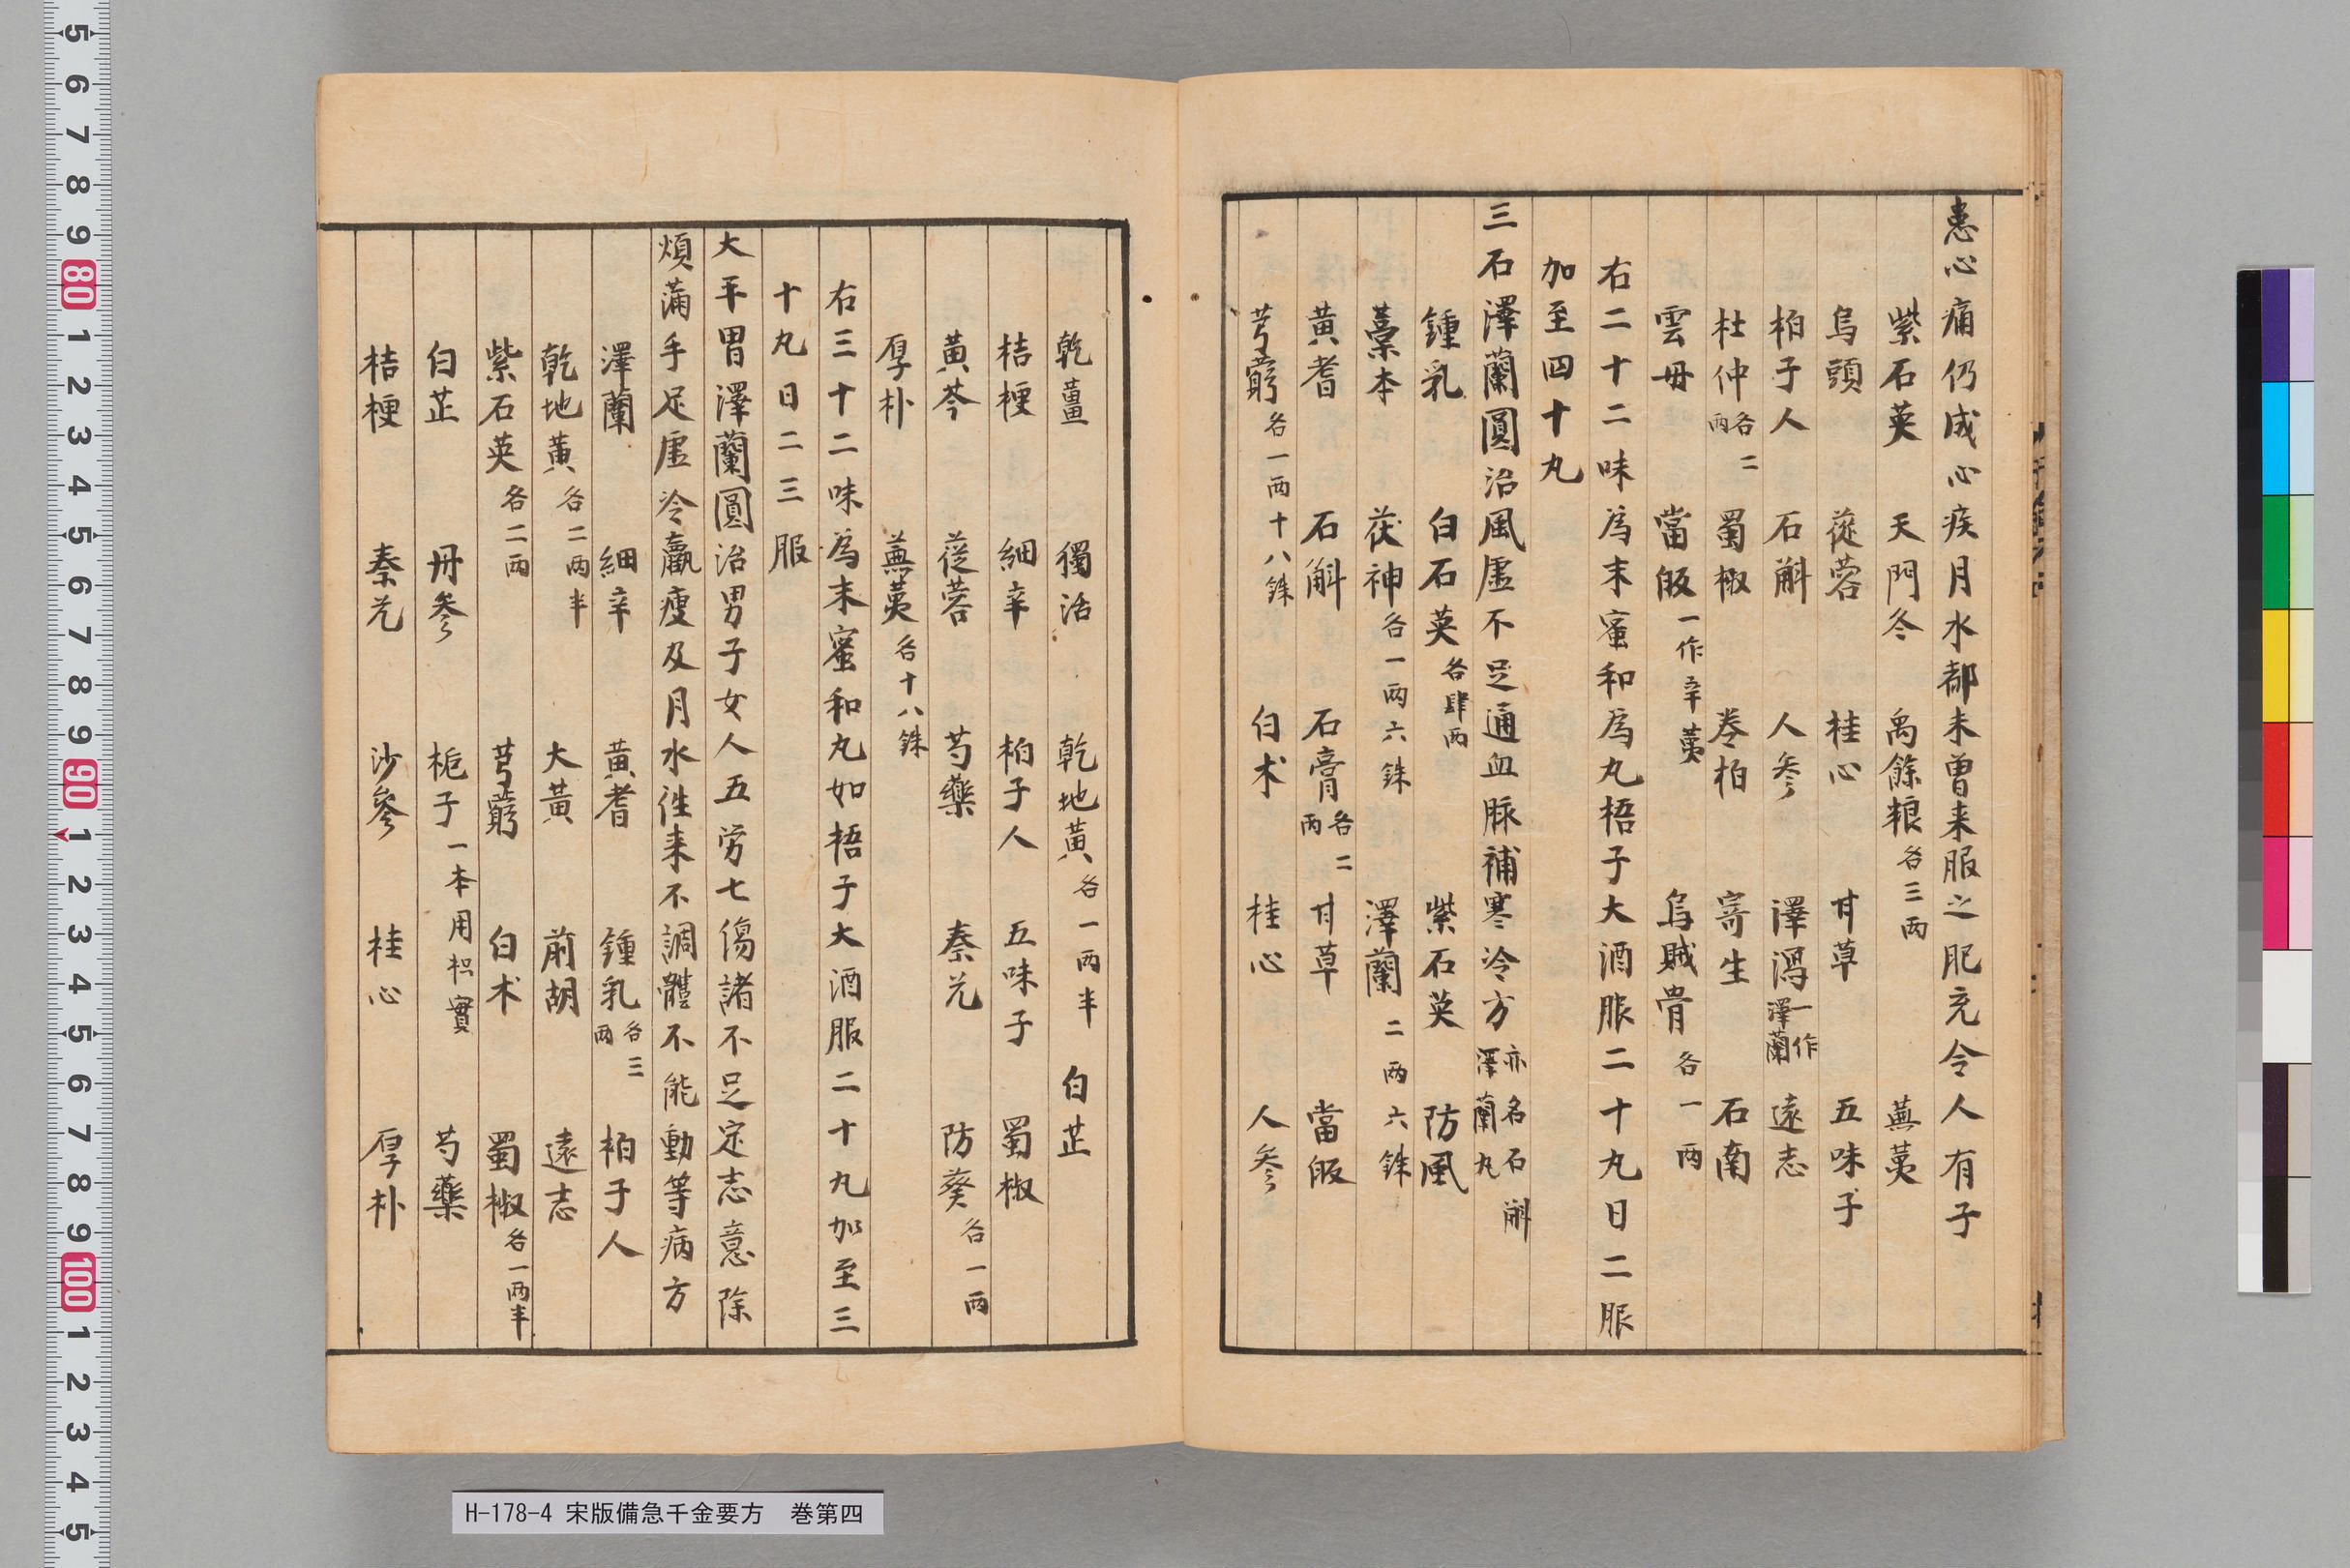 患心痛仍成心疾月水都未曾来服之肥充令人有子
紫石英 天門冬 禹餘粮各三两 蕪荑
烏頭 蓯蓉 桂心 甘草 五味子
柏子人 石斛 人參 澤瀉一作澤蘭 遠志
杜仲各二两 蜀椒 卷柏 寄生 石南
雲母 當皈一作辛荑 烏賊骨各一两
右二十二味爲末蜜和爲丸梧子大酒服二十丸日二服
加至四十丸
三石澤蘭圓治風虛不足通血脉補寒冷方亦名石斛澤蘭丸
鍾乳 白石英各肆两 紫石英 防風
藁本 茯神各一两六銖 澤蘭二两六銖
黃耆 石斛 石膏各二两 甘草 當皈
芎藭各一两十八銖 白术 桂心 人參
乾薑 獨活 乾地黃各一两半 白芷
桔梗 細辛 柏子人 五味子 蜀椒
黃芩 蓯蓉 芍藥 秦艽 防葵各一两
厚朴 蕪荑各十八銖
右三十二味爲末蜜和丸如梧子大酒服二十丸加至三
十丸日二三服
大平胃澤蘭圓治男子女人五勞七傷諸不足定志意除
煩滿手足虛冷羸瘦及月水徃来不調體不能動等病方
澤蘭 細辛 黃耆 鍾乳各三两 柏子人
乾地黃各二两半 大黃 前胡 遠志
紫石英各二两 芎藭 白术 蜀椒各一两半
白芷 丹參 梔子一本用枳實 芍藥
桔梗 秦艽 沙參 桂心 厚朴
H-178-4 宋版備急千金要方　巻第四
5 6 7 8 9 80 1 2 3 4 5 6 7 8 9 90 1 2 3 4 5 6 7 8 9 100 1 2 3 4 5